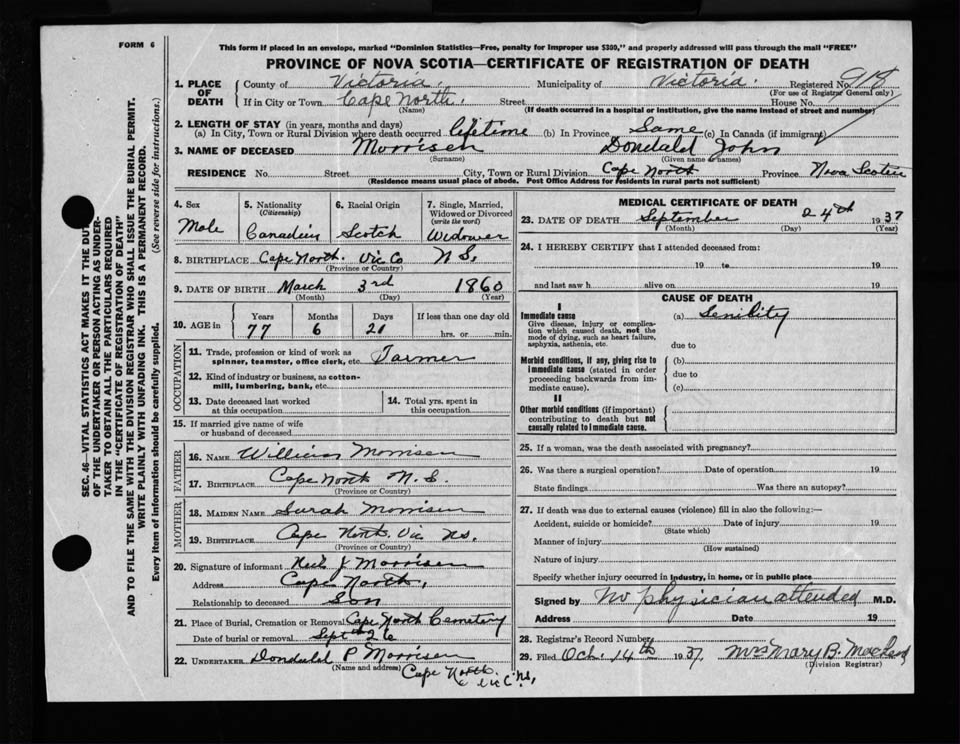 FORM 6
This form if placed in an envelope, marked "Dominion Statistics—Free, penalty for improper use $300," and properly addressed will pass through the mail "FREE"
PROVINCE OF NOVA SCOTIA—CERTIFICATE OF REGISTRATION OF DEATH
1. PLACE OF DEATH County of Victoria. Municipality of Victoria. Registered No. 918
(For use of Registrar General only)
If in City or Town Cape North. Street House No.
(Name) (If death occurred in a hospital or institution, give the name instead of street and number)
2. LENGTH OF STAY (in years, months and days)
(a) In City, Town or Rural Division where death occurred lifetime (b) In Province Same (c) In Canada (if immigrant)
3. NAME OF DECEASED Morrisen Dondald John
(Surname) (Given name or names)
RESIDENCE No. Street City, Town or Rural Division Cape North Province Nova Scotia
(Residence means usual place of abode. Post Office Address for residents in rural parts not sufficient)
4. Sex 5. Nationality 6. Racial Origin 7. Single, Married,
(Citizenship) Widowed or Divorced
(write the word)
Male Canadian Scotch Widower
8. BIRTHPLACE Cape North. Vic Co N S,
(Province or Country)
9. DATE OF BIRTH March 3rd 1860
(Month) (Day) (Year)
10. AGE in Years Months Days If less than one day old
77 6 21 hrs. or min.
OCCUPATION
11. Trade, profession or kind of work as
spinner, teamster, office clerk, etc. Farmer
12. Kind of industry or business, as cotton-
mill, lumbering, bank, etc.
13. Date deceased last worked
at this occupation
14. Total yrs. spent in
this occupation
15. If married give name of wife
or husband of deceased
FATHER
16. NAME William Morrisen
17. BIRTHPLACE Cape North N. S.
(Province or Country)
MOTHER
18. MAIDEN NAME Surah Morrisen
19. BIRTHPLACE Cape North. Vic Ns,
(Province or Country)
20. Signature of informant Neil J Morrisen
Address Cape North,
Relationship to deceased Son
21. Place of Burial, Cremation or Removal Cape North Cemetery
Date of burial or removal Sept 26
22. UNDERTAKER Dondald P Morrisen
(Name and address) Cape North.
MEDICAL CERTIFICATE OF DEATH
23. DATE OF DEATH September 24th 1937
(Month) (Day) (Year)
24. I HEREBY CERTIFY that I attended deceased from:
19 to 19
and last saw h alive on 19
CAUSE OF DEATH
I
Immediate cause (a) Senility
Give disease, injury or complica-
tion which caused death, not the
mode of dying, such as heart failure,
asphyxia, asthenia, etc.
due to
Morbid conditions, if any, giving rise to (b)
immediate cause (stated in order
proceeding backwards from im-
mediate cause).
due to
(c)
II
Other morbid conditions (if important)
contributing to death but not
causally related to immediate cause.
25. If a woman, was the death associated with pregnancy?
26. Was there a surgical operation? Date of operation 19
State findings Was there an autopsy?
27. If death was due to external causes (violence) fill in also the following:—
Accident, suicide or homicide? Date of injury 19
(State which)
Manner of injury
(How sustained)
Nature of injury
Specify whether injury occurred in industry, in home, or in public place
Signed by No physician attended M.D.
Address Date 19
28. Registrar's Record Number
29. Filed Oct. 14th 1937 Mrs Mary B.
(Division Registrar)
SEC. 46—VITAL STATISTICS ACT MAKES IT THE DUTY
OF THE UNDERTAKER OR PERSON ACTING AS UNDER-
TAKER TO OBTAIN ALL THE PARTICULARS REQUIRED
IN THE "CERTIFICATE OF REGISTRATION OF DEATH"
AND TO FILE THE SAME WITH THE DIVISION REGISTRAR WHO SHALL ISSUE THE BURIAL PERMIT.
WRITE PLAINLY WITH UNFADING INK. THIS IS A PERMANENT RECORD.
Every item of information should be carefully supplied. (See reverse side for instructions.)